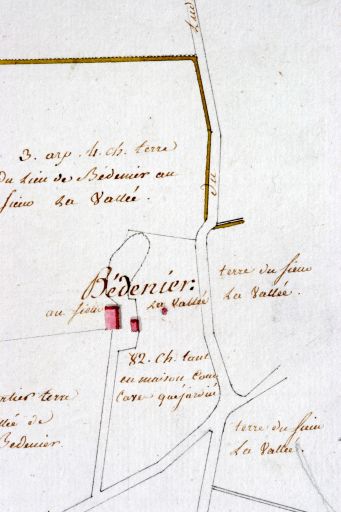 Du
3. arp. 4. ch. terre
du lieu de Bédenier au
sieur La Vallée.
Bédenier:
au sieur La Vallée
terre du sieur
La Vallée.
82. Ch. tant
en maison Cour
Cave que jardin
terre
de
Bedenier
terre du sieur
La Vallée.